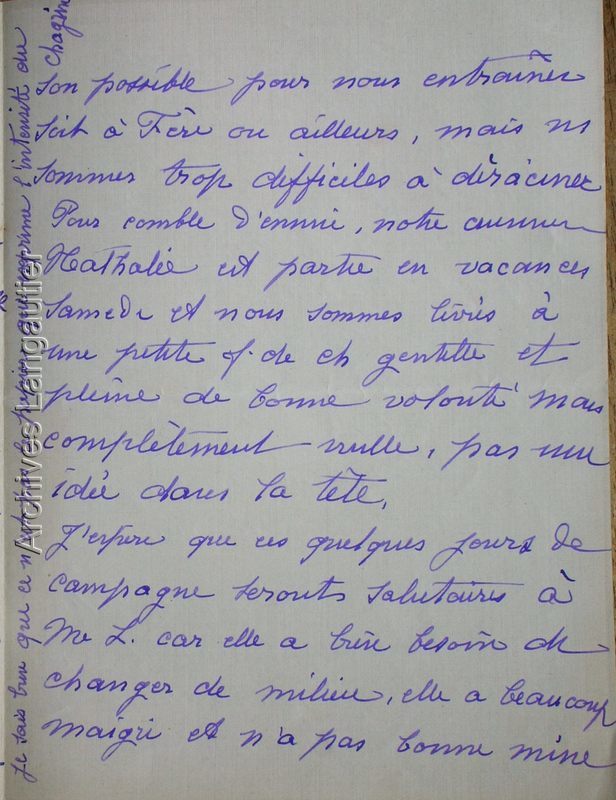 son possible pour nous entraîner
soit à Fère ou ailleurs, mais ns
sommes trop difficiles à déraciner
Pour comble d'ennui, notre
Nathalie est partie en vacances
samedi et nous sommes livrés à
une petite f. de ch gentille et
pleine de bonne volonté mais
complètement nulle, pas une
idée dans la tête.
J'espère que ces quelques jours de
campagne seronts salutaires à
Me L. car elle a bien besoin de
changer de milieu, elle a beaucoup
maigri et n'a pas bonne mine
Je sais bien que ce n'est pas exprime l'intensité du
chagrin
Archives Langautier